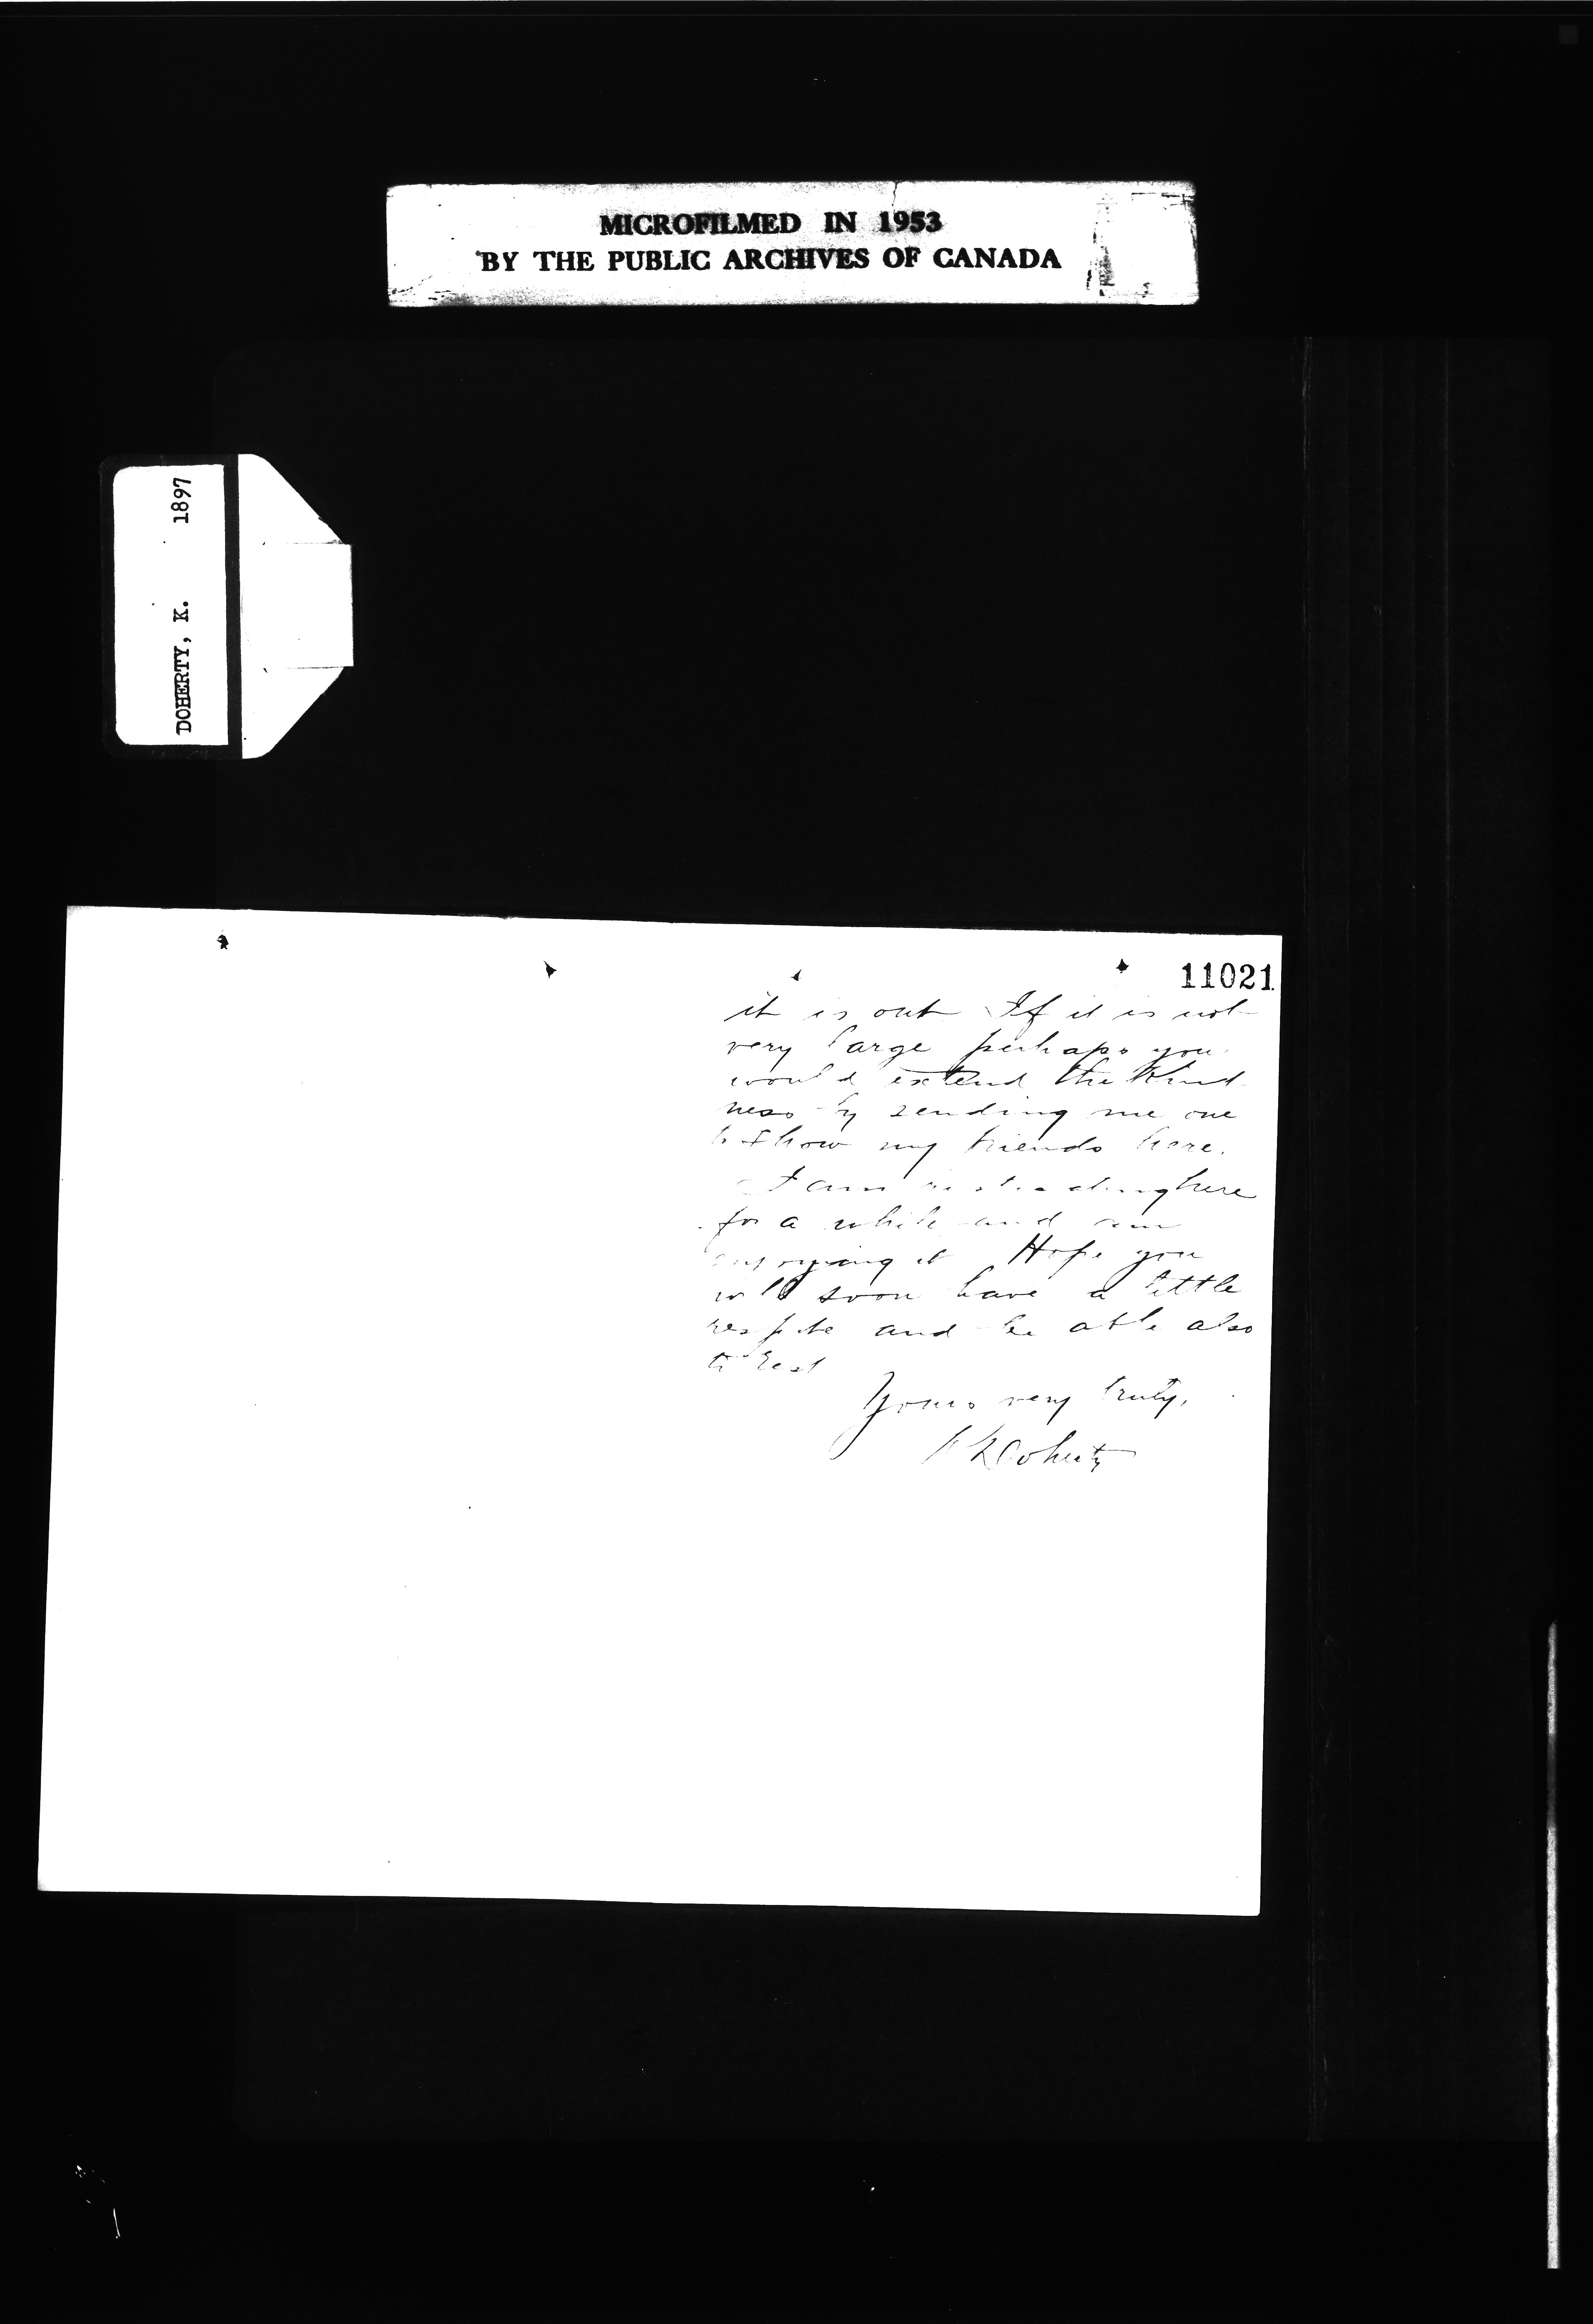 MICROFILMED IN 1953
BY THE PUBLIC ARCHIVES OF CANADA
DOHERTY, K. 1897
11021
it is out If it is not
very large perhaps you
would extend the Kind
ness by sending me one
to show my friends here.
I am here
for a while and am
enjoying it Hope you
will soon have a little
respite and be able also
to rest
Yours very truly,
K Doherty